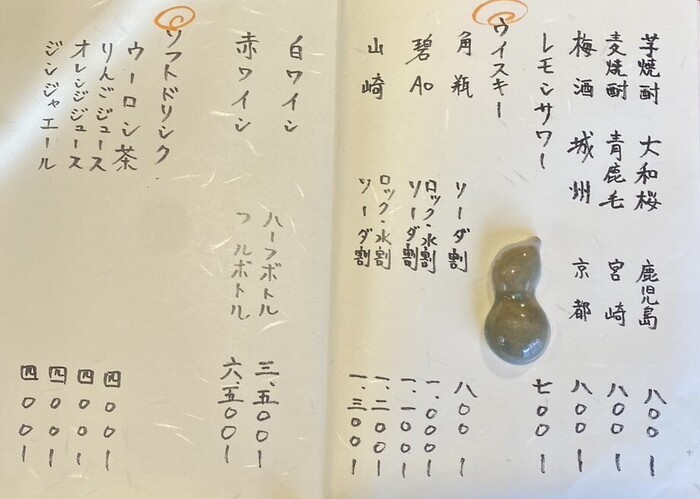 芋焼酎 大和桜 鹿児島 八〇〇ー
麦焼酎 青鹿毛 宮崎 八〇〇ー
梅酒 城州 京都 八〇〇ー
レモンサワー 七〇〇ー
ウイスキー
角瓶 ソーダ割 八〇〇ー
碧Ao ロック・水割 一、〇〇〇ー
ソーダ割 一、一〇〇ー
山崎 ロック・水割 一、二〇〇ー
ソーダ割 一、三〇〇ー
白ワイン ハーフボトル 三、五〇〇ー
赤ワイン フルボトル 六、五〇〇ー
ソフトドリンク
ウーロン茶 四〇〇ー
りんごジュース 四〇〇ー
オレンジジュース 四〇〇ー
ジンジャエール 四〇〇ー